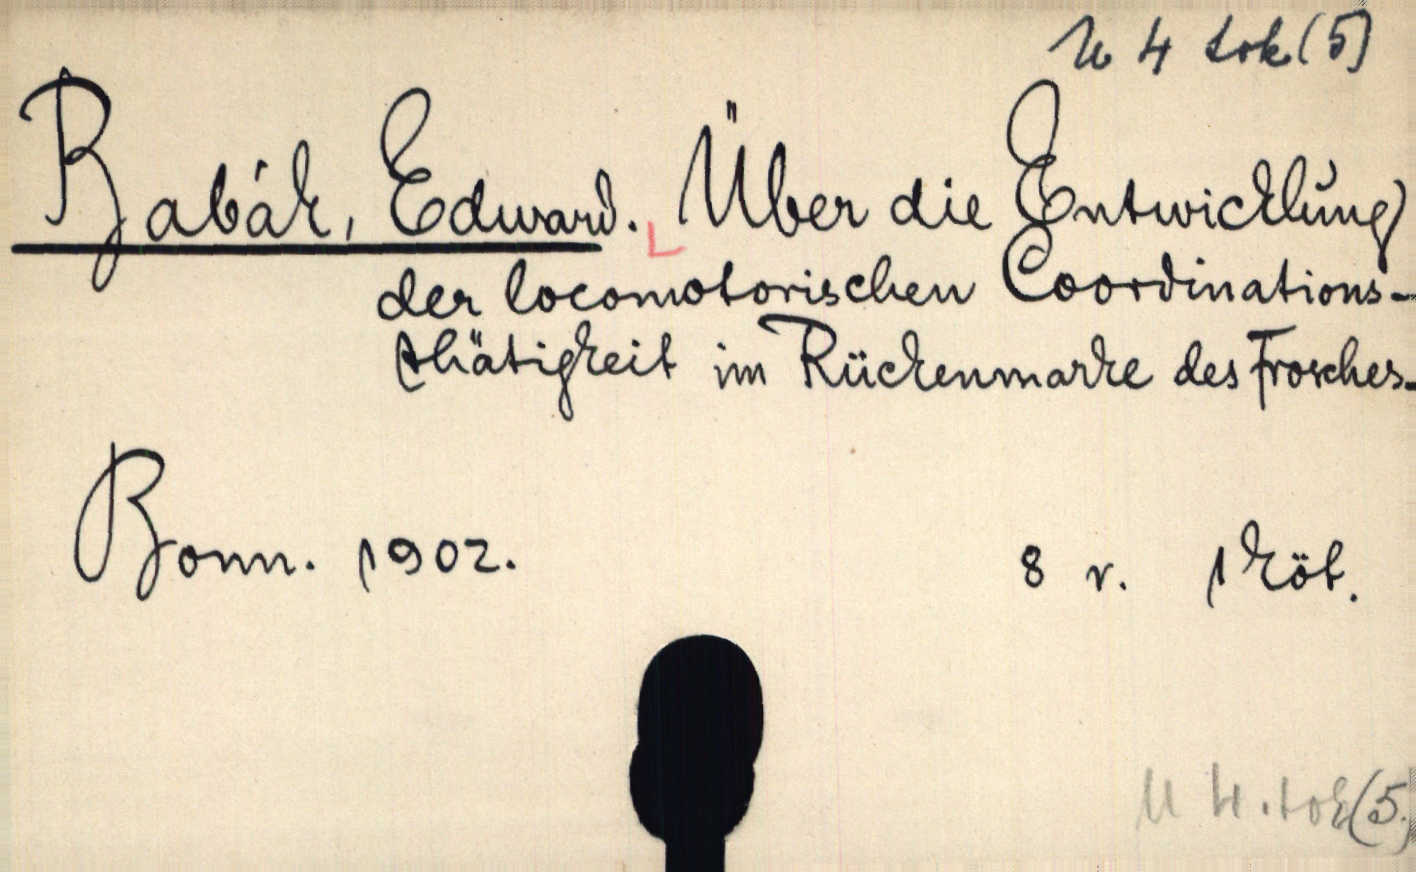 U 4 tok (5)
Babák, Edward. Über die Entwicklung
der locomotorischen Coordinations-
thätigkeit im Rückenmarke des Frosches.
Bonn. 1902. 8 r. 1 köt.
U 4. tok (5.)